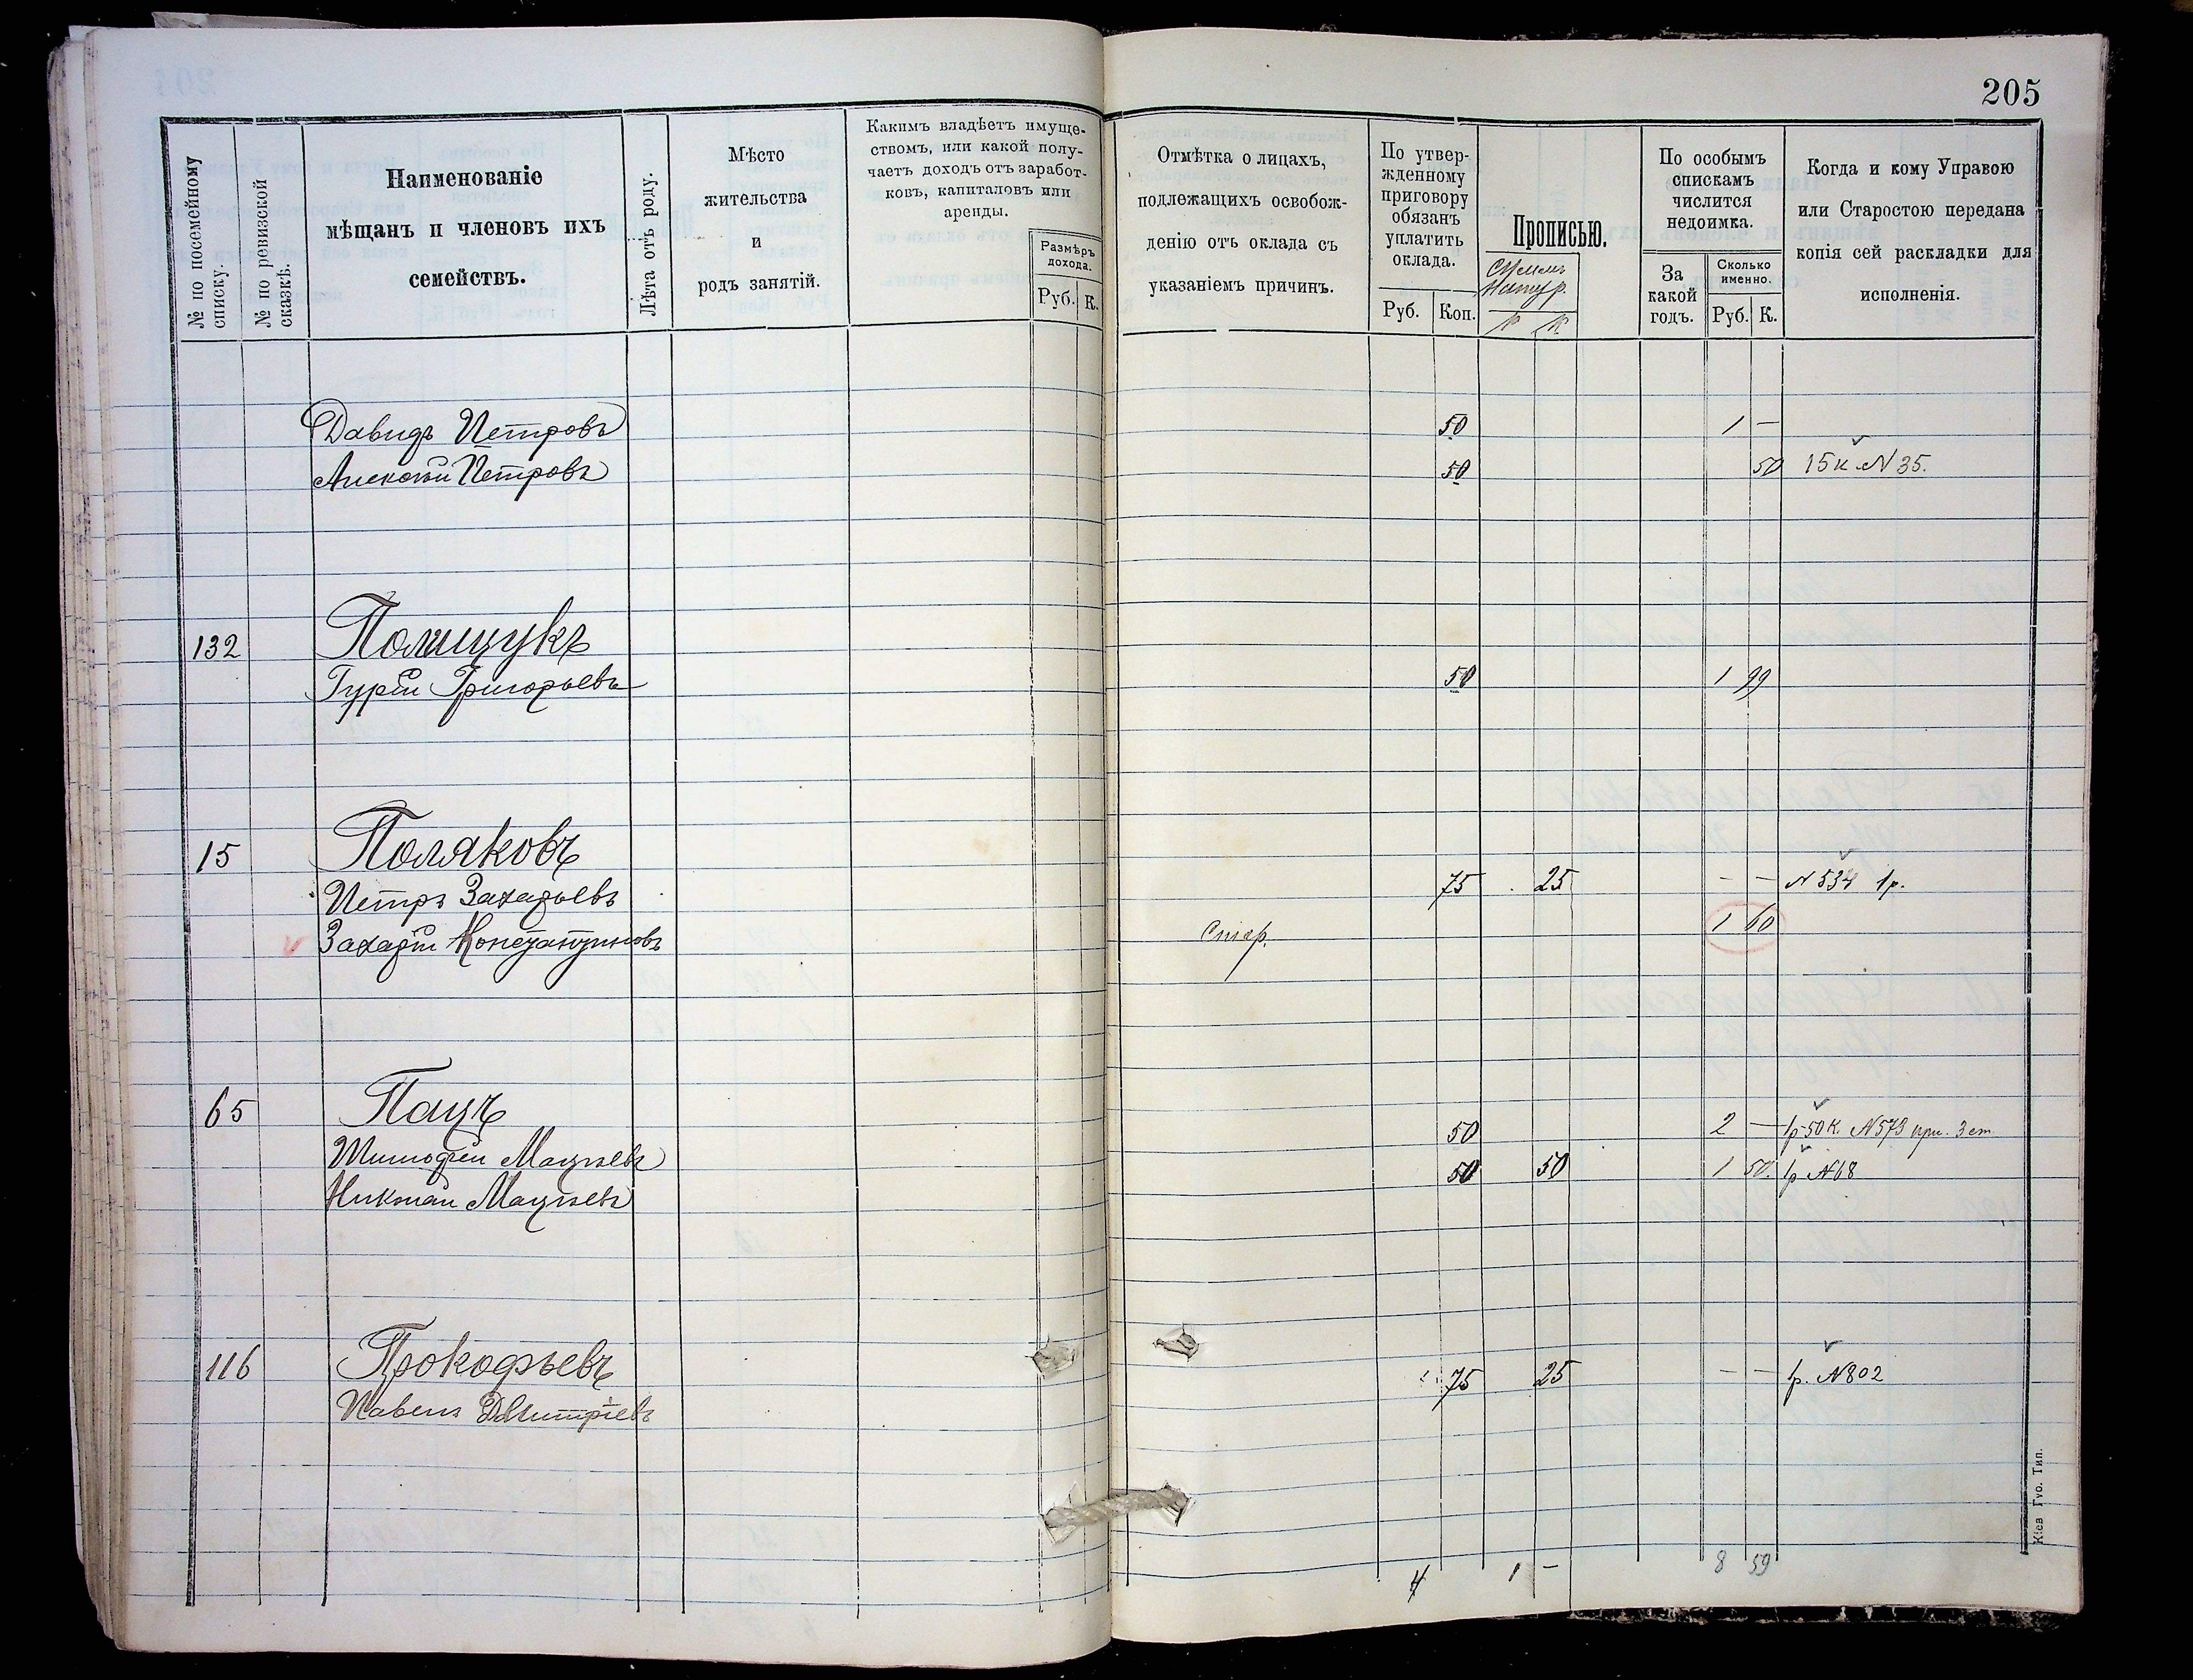 205
№ по посемейному списку.
№ по ревизской сказкѣ.
Наименованіе
мѣщанъ и членовъ ихъ
семействъ.
Лѣта отъ роду.
Мѣсто
жительства
и
родъ занятій.
Какимъ владѣетъ имуще-
ствомъ, или какой полу-
чаетъ доходъ отъ заработ-
ковъ, капиталовъ или
аренды.
Размѣръ
дохода.
Руб. К.
Отмѣтка о лицахъ,
подлежащихъ освобож-
денію отъ оклада съ
указаніемъ причинъ.
По утвер-
жденному
приговору
обязанъ
уплатить
оклада.
Руб. Коп.
Прописью.
По особымъ
спискамъ
числится
недоимка.
За
какой
годъ.
Сколько
именно.
Руб. К.
Когда и кому Управою
или Старостою передана
копія сей раскладки для
исполненія.
Давидъ Петровъ 50 1 —
Алексѣй Петровъ 50 50 15к №35.
132 Полищукъ
Гурій Григорьевъ 50 1 99
15 Поляковъ
Петръ Захарьевъ 75 25 — — №534 1р.
Захарій Константиновъ Стар. 1 60
65 Пацъ
Тимофей 50 2 — 1р 50к. №573 при. 3 ст
Николай 50 50 1 50. 1р №68
116 Прокофьевъ
Павелъ Дмитріевъ 75 25 — — 1р. №802
4 1 — 8 59
Кіев Гуо. Тип.